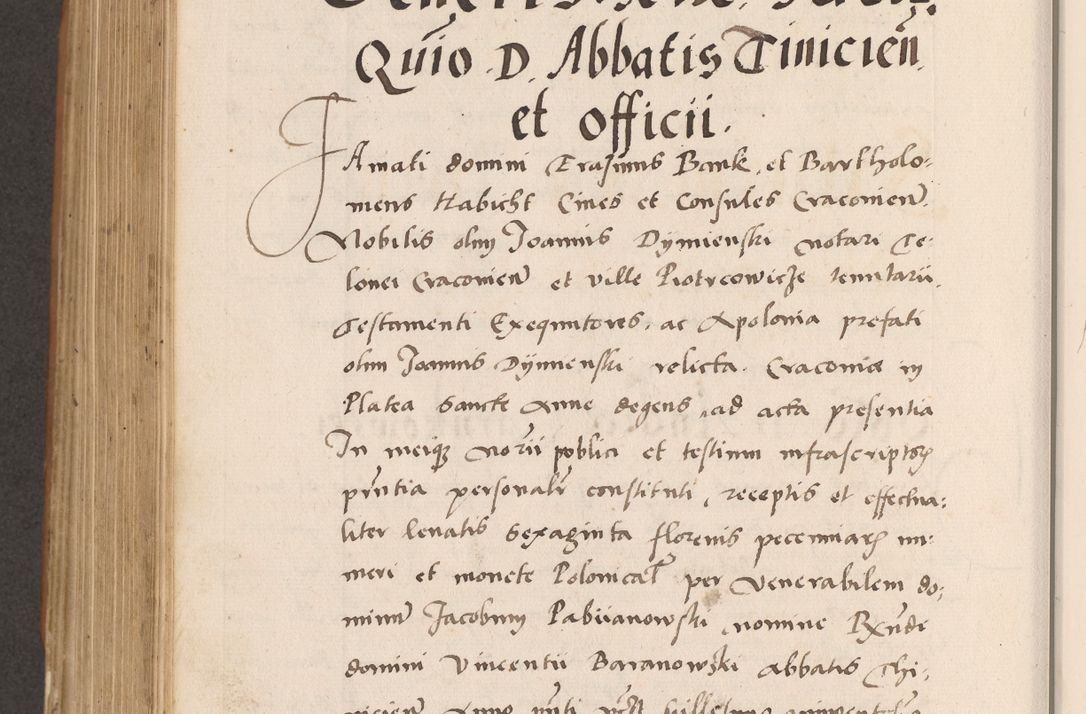 Quio D. Abbatis Tiniciен̃
et officii.
Amati domini Erasmus Bank, et Bartholo:
meus Habicht Cives et Consules Cracovien̄.
Nobilis olim Joannis Dymienski notari Te:
lonei Cracovien̄ et ville Piotrcowicze tenutarii.
Testamenti Exequutores, ac Apolonia prefati
olim Joannis Dymienski relicta. Cracoviæ in
Platea Sancte Anne degens, ad acta presentia
In meiqz Norii publici et testium infrascriptoꝝ
pn̄tia personalr̄ constituti, receptis et effectua:
liter levatis sexaginta florenis pecuniaꝝ nu:
meri et monete Polonical̄ per Venerabilem do:
minum Jacobum Pabiianowski, nomine Rxn̄di
domini Vincentii Baranowski Abbatis Thi: